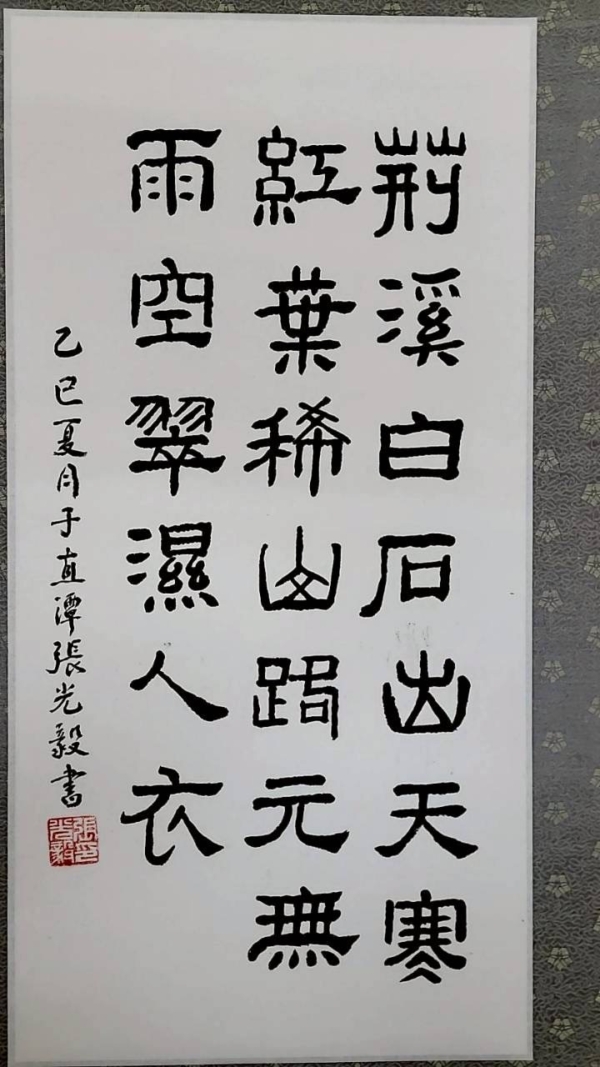 荊溪白石出天寒
紅葉稀山路元無
雨空翠濕人衣
乙巳夏月于直潭張光毅書
張光毅印